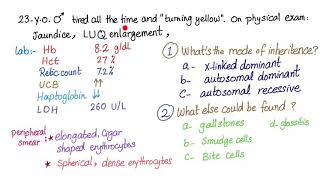 23-y.o. ♂ tired all the time and "turning yellow". On physical exam:
Jaundice, LUQ enlargement,
Lab:- Hb 8.2 g/dl
Hct 27%
Retic count 7.2%
UCB ↑↑
Haptoglobin ↓
LDH 260 U/L
peripheral smear:
* elongated, cigar shaped erythrocytes
* Spherical, dense erythrocytes
1 What's the mode of inheritence?
a- X-linked dominant
b- autosomal dominant
c- autosomal recessive
2 What else could be found?
a- gallstones d- glossitis
b- Smudge cells
c- Bite cells